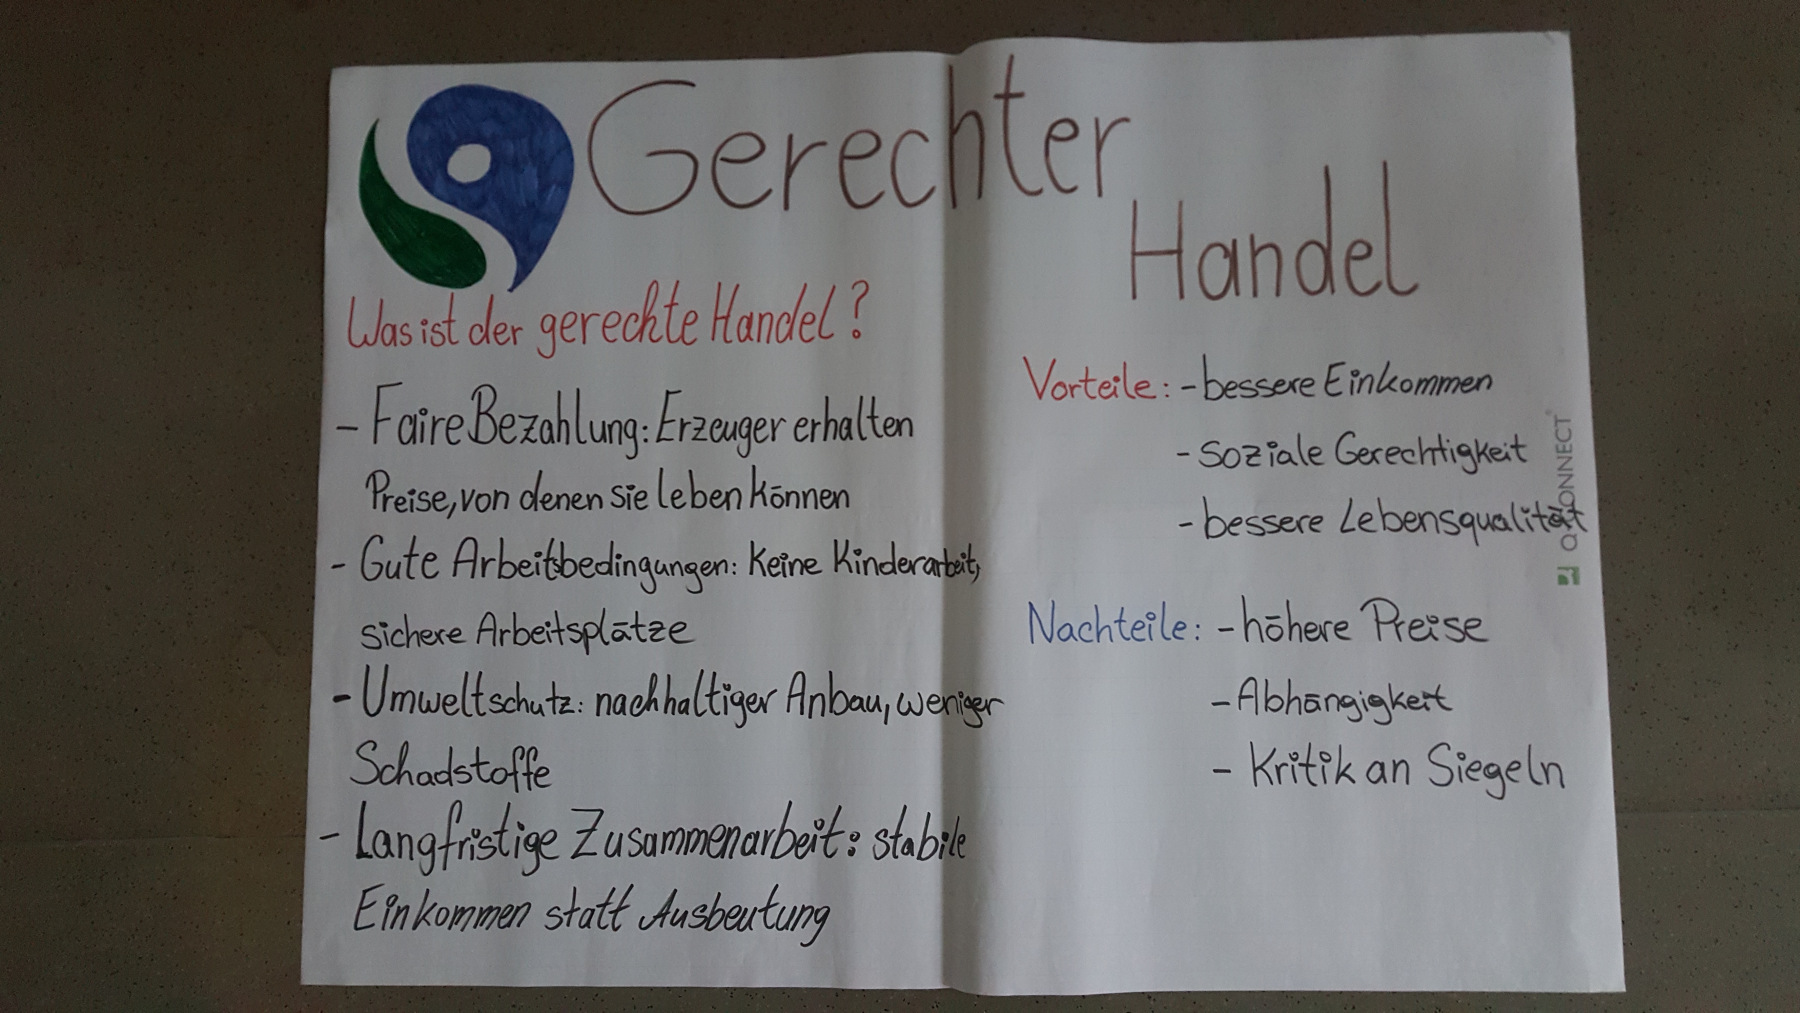 Gerechter
Handel
Was ist der gerechte Handel?
- Faire Bezahlung: Erzeuger erhalten
Preise, von denen sie leben können
- Gute Arbeitsbedingungen: Keine Kinderarbeit,
sichere Arbeitsplätze
- Umweltschutz: nachhaltiger Anbau, weniger
Schadstoffe
- Langfristige Zusammenarbeit: stabile
Einkommen statt Ausbeutung
Vorteile: - bessere Einkommen
- soziale Gerechtigkeit
- bessere Lebensqualität
Nachteile: - höhere Preise
- Abhängigkeit
- Kritik an Siegeln
Q-CONNECT